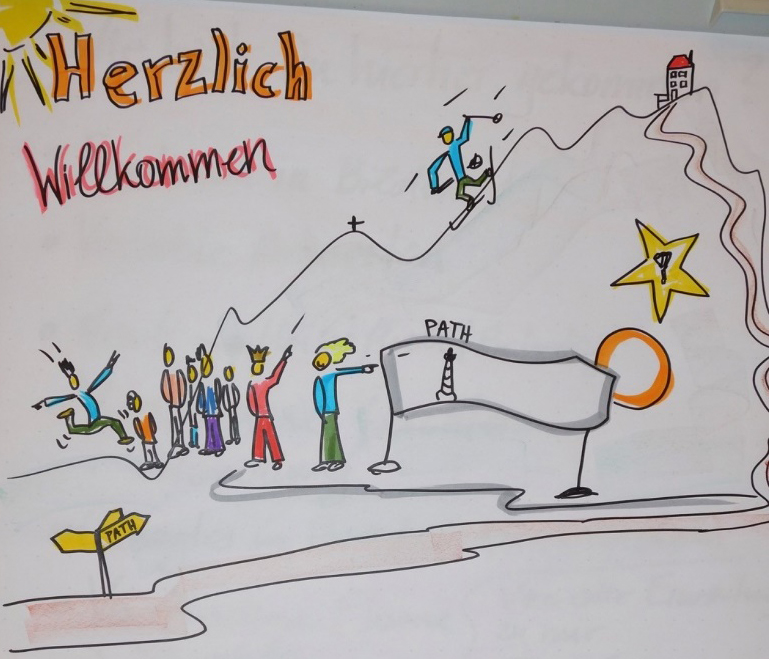 Herzlich
Willkommen
PATH
PATH